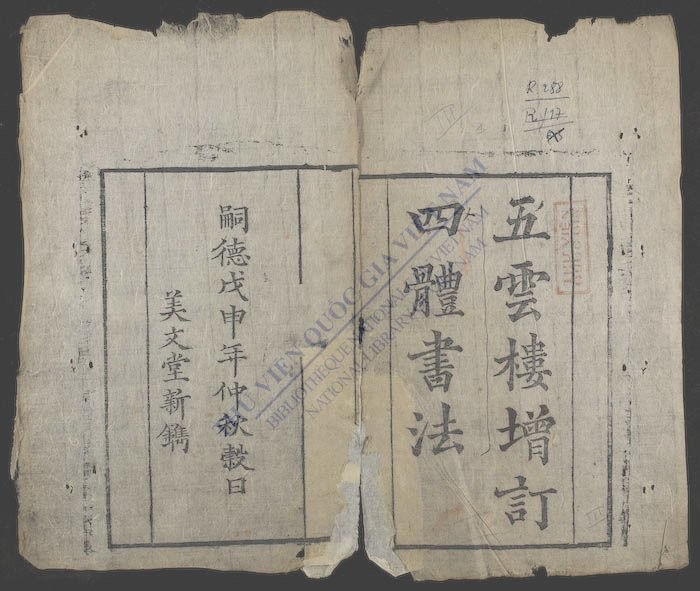 五雲樓增訂
四體書法
嗣德戊申年仲秋穀日
美文堂新鐫
R.288
THƯ VIỆN QUỐC GIA VIỆT NAM
BIBLIOTHÈQUE NATIONALE DU VIETNAM
NATIONAL LIBRARY OF VIETNAM